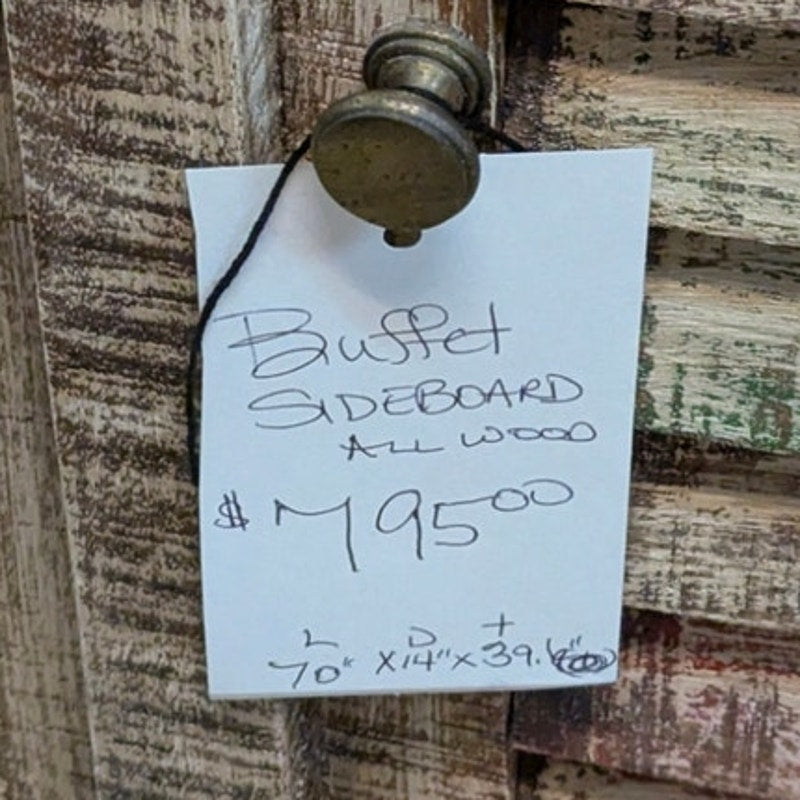 Buffet
SIDEBOARD
ALL WOOD
$ 795 00
L D +
70" X 14" x 39.